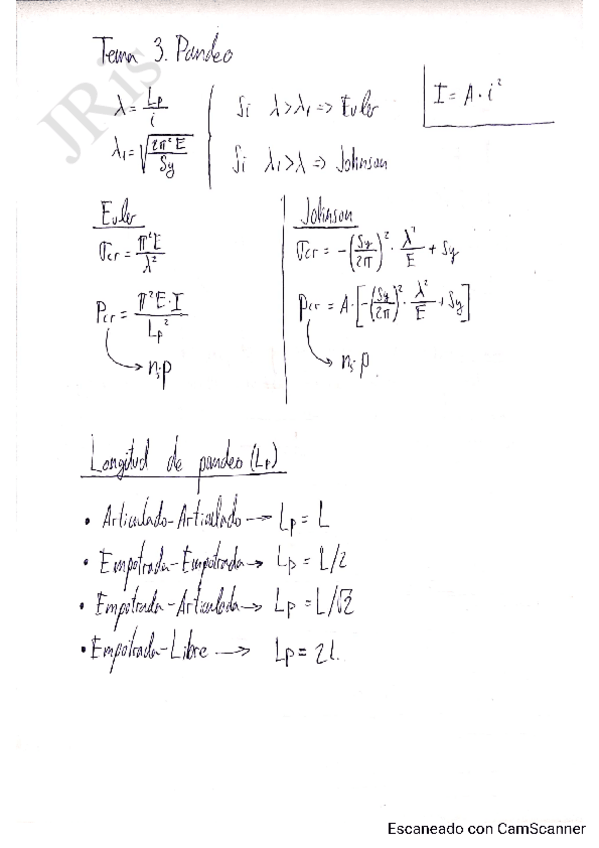 Tema 3. Pandeo
JRis
λ = Lp/i
λ₁ = √(2π²E/Sy)
Si λ>λ₁ => Euler
Si λ₁>λ => Johnson
I = A·i²
Euler
σcr = π²E/λ²
Pcr = π²E·I/Lp²
→ ns·p
Johnson
σcr = -(Sy/2π)²·λ²/E + Sy
Pcr = A·[-(Sy/2π)²·λ²/E + Sy]
→ ns·p
Longitud de pandeo (Lp)
• Articulado-Articulado → Lp = L
• Empotrada-Empotrada → Lp = L/2
• Empotrada-Articulada → Lp = L/√2
• Empotrada-Libre → Lp = 2L
Escaneado con CamScanner